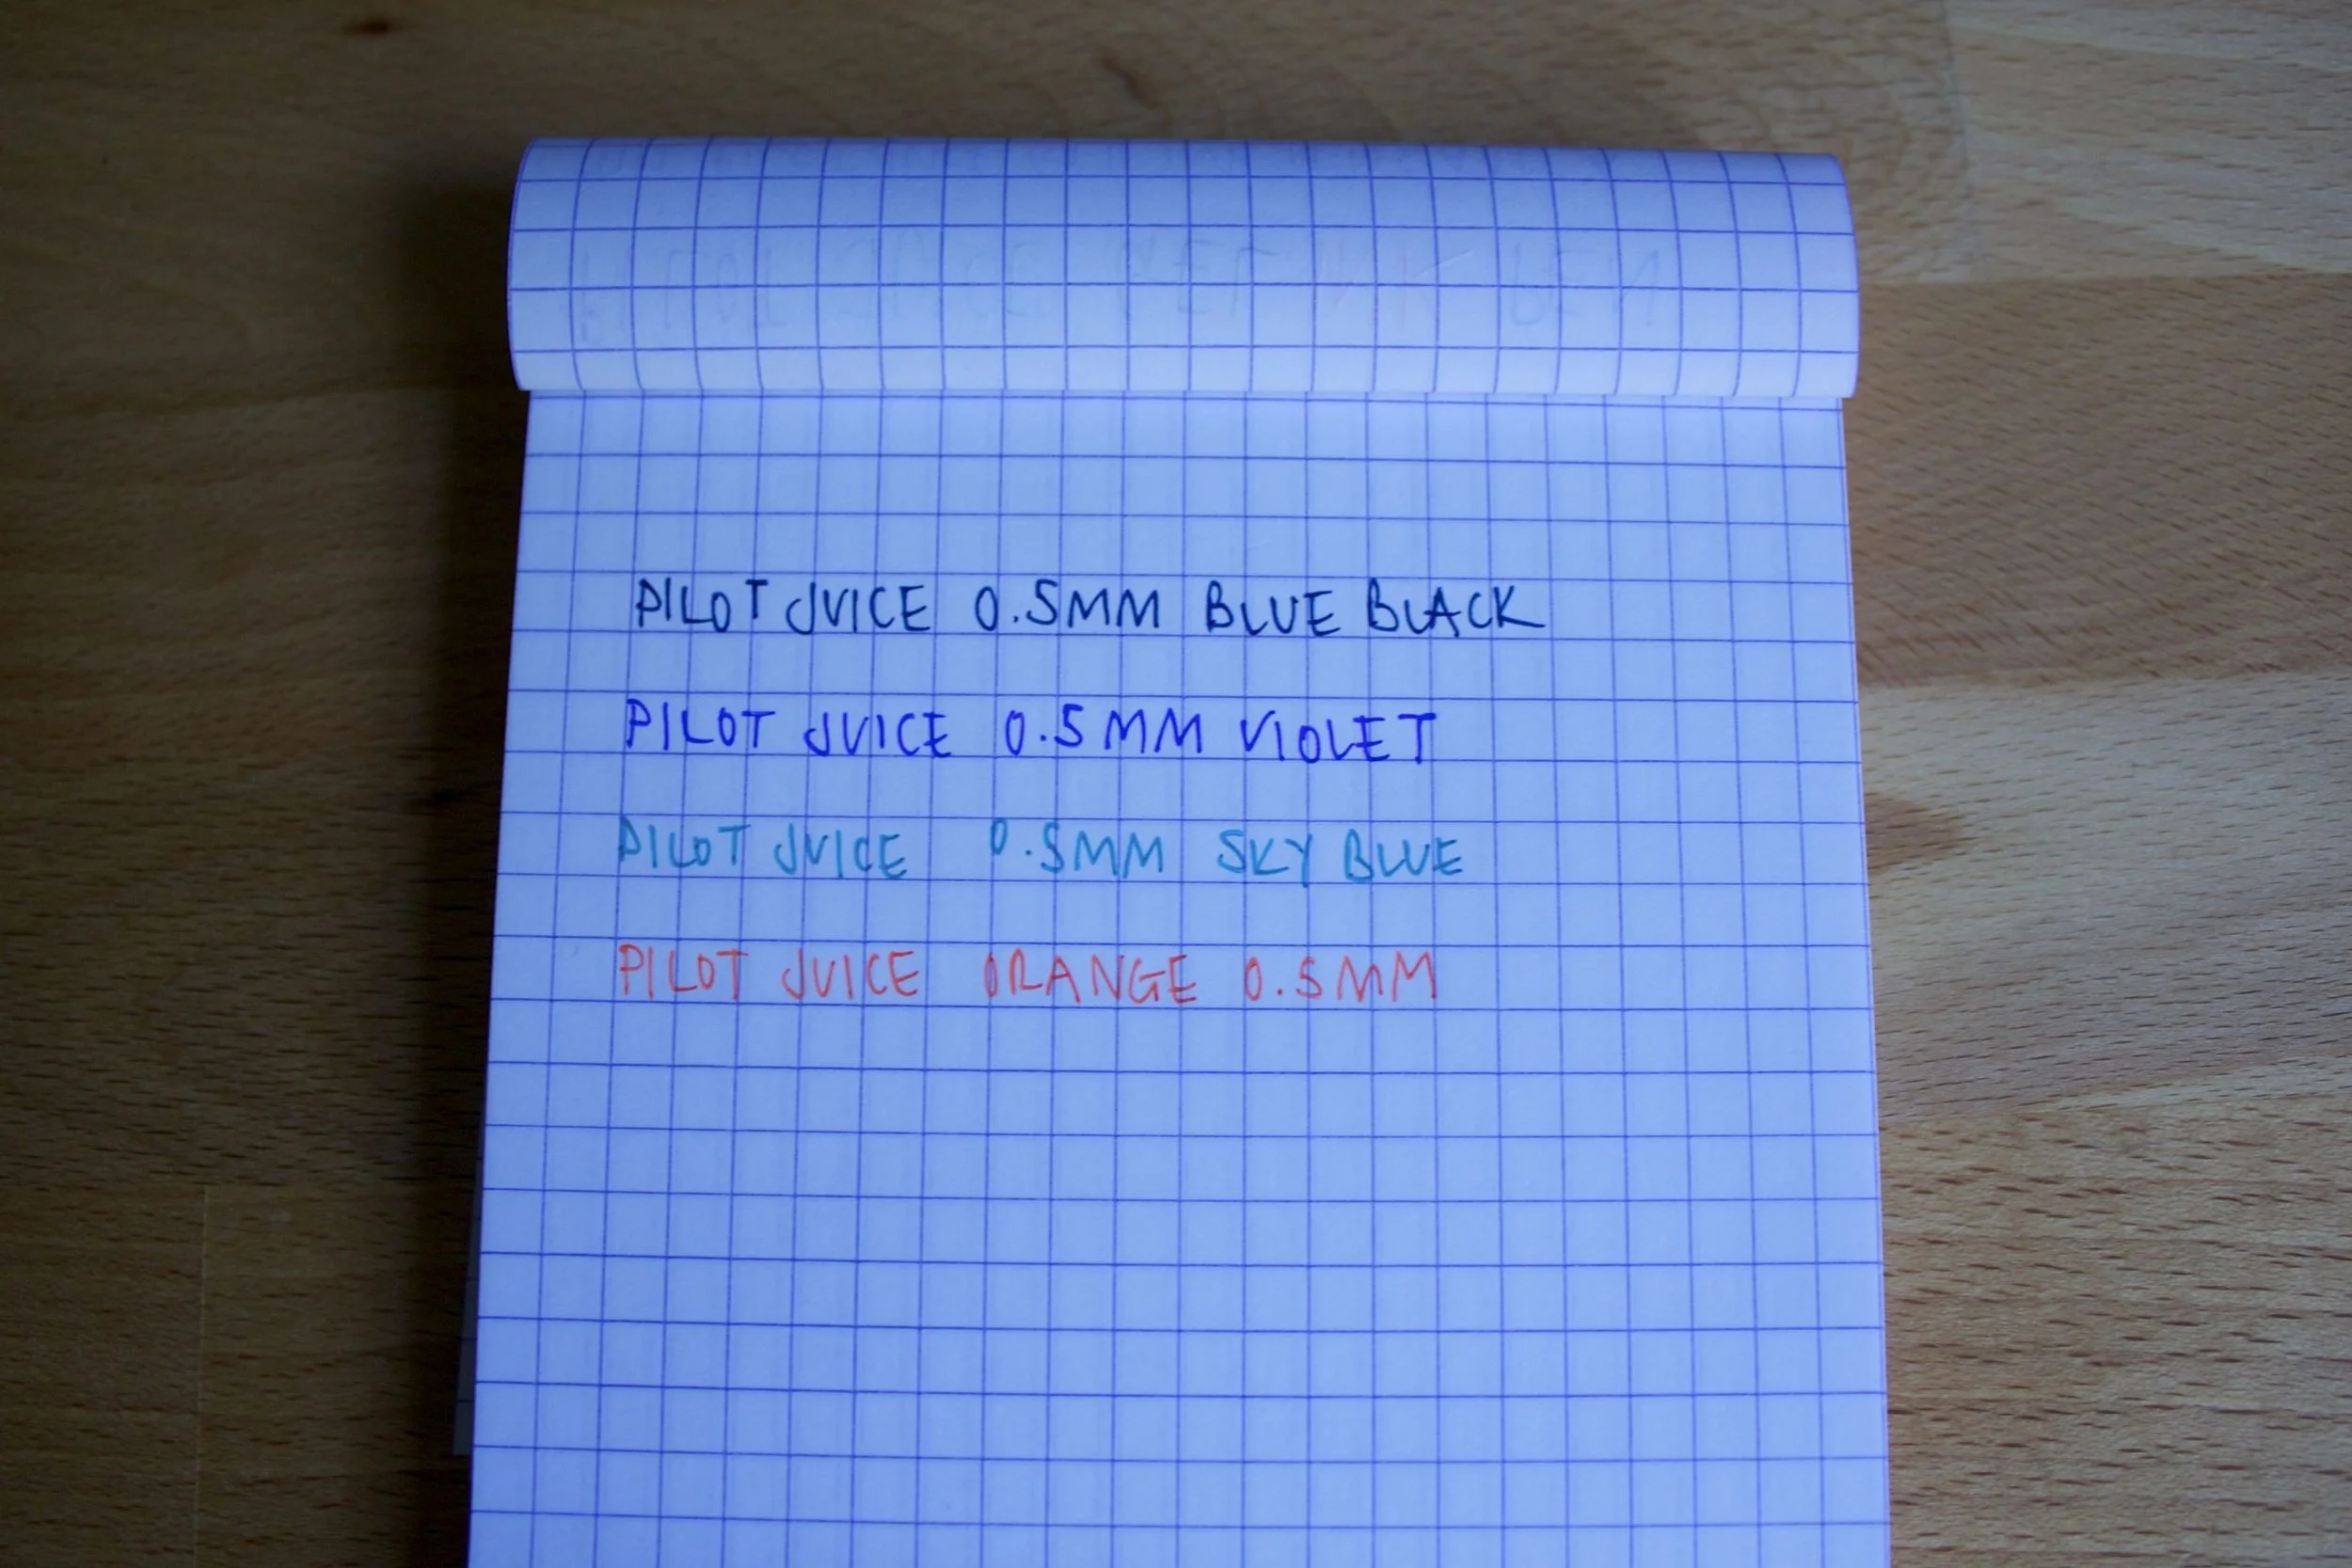 PILOT JUICE GEL INK PEN
PILOT JUICE 0.5MM BLUE BLACK
PILOT JUICE 0.5MM VIOLET
PILOT JUICE 0.5MM SKY BLUE
PILOT JUICE ORANGE 0.5MM